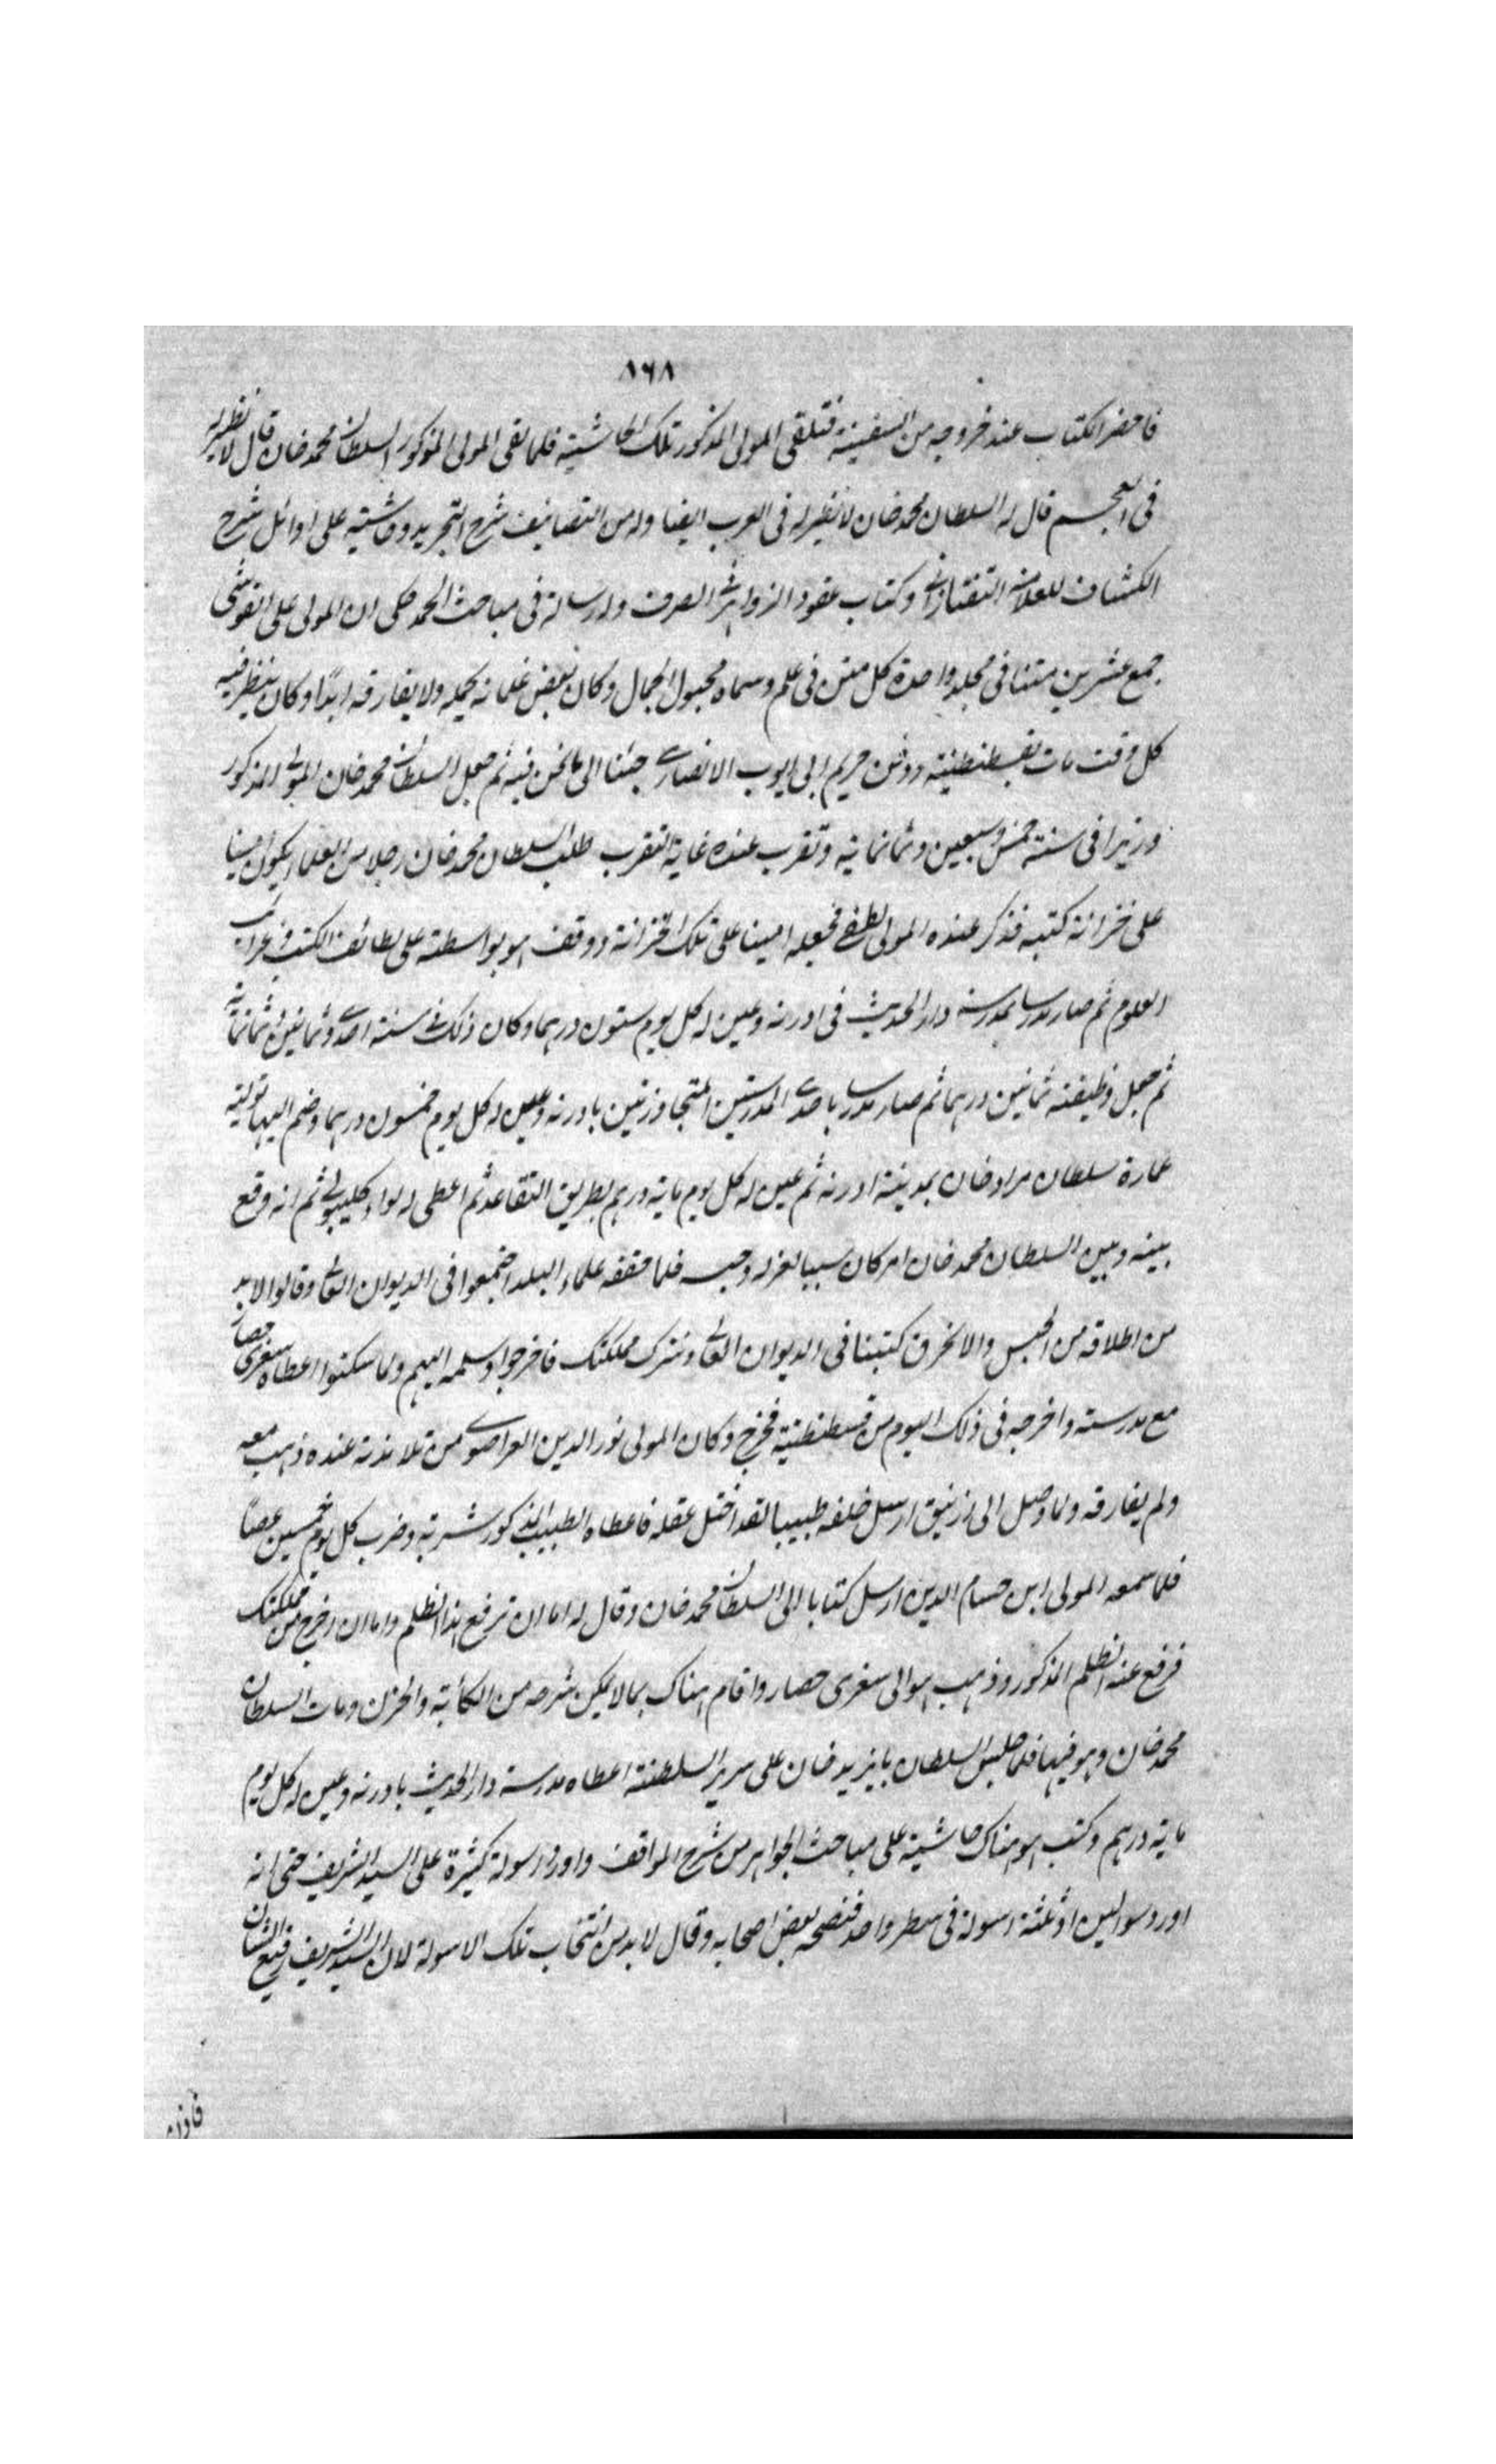 ٨٦٨
فاحضر الكتاب عند خروجه من السفينة فتلقى المولى المذكور تلك الحاشية فلما لقى المولى المذكور السلطان محمد خان قال لا نظير له
فى العجم قال له السلطان محمد خان لا نظير له فى العرب ايضا وله من التصانيف شرح التجريد وحاشيته على اوائل شرح
الكشاف للعلامة التفتازانى وكتاب عقود الزواهر فى الصرف وله رسالة فى مباحث الحمد حكى ان المولى على القوشى
جمع عشرين متنا فى مجلد واحدة كل متن فى علم وسماه محبول الحمال وكان بعض غلمانه يحمله ولا يفارقه ابدًا وكان ينظر فيه
كل وقت مات بقسطنطنية ودفن حريم ابى ايوب الانصارى جئنا الى ما نحن فيه ثم جعل السلطان محمد خان المولى المذكور
وزيرا فى سنة خمس وسبعين وثمانماية وتقرب عنده غاية التقرب طلب السلطان محمد خان رجلا من العلماء ليكون امينا
على خزانة كتبه فذكر عنده المولى لطفى فجعله امينا على تلك الخزانة ووقف هو بواسطته على لطائف الكتب وغرائب
العلوم ثم صار مدرسا بمدرسة دار الحديث فى ادرنه وعين له كل يوم ستون درهما وكان ذلك فى سنة احدى وثمانين وثمانماية
ثم جعل وظيفته ثمانين درهما ثم صار مدرسا باحدى المدرستين المتجاوزتين بادرنه وعين له كل يوم خمسون درهما وضم اليها تولية
عمارة سلطان مراد خان بمدينة ادرنه ثم عين له كل يوم ماية درهم بطريق التقاعد ثم اعطى له لواء كليبولى ثم انه وقع
بينه وبين السلطان محمد خان امر كان سببا لعزله وحبسه فلما حققه علماء البلد اجتمعوا فى الديوان العالى وقالوا لا بد
من اطلاقه من الحبس والا نحرق كتبنا فى الديوان العالى ونترك مملكتك فاخرجوا وسلمه اليهم ولما سكنوا اعطاه سفرى حصار
مع مدرسته واخرجه فى ذلك اليوم من قسطنطنية فخرج وكان المولى نور الدين القراصوى من تلامذته عنده ذهب معه
ولم يفارقه ولما وصل الى ازنيق ارسل خلفه طبيبا لقد اختل عقله فاعطاه الطبيب المذكور شربة وضرب كل يوم خمسين عصًا
فلما سمعه المولى ابن حسام الدين ارسل كتابا الى السلطان محمد خان وقال له اما ان ترفع هذا الظلم واما ان اخرج من مملكتك
فرفع عنه الظلم المذكور وذهب هو الى سفرى حصار واقام هناك بما لا يمكن شرحه من الكأبة والحزن ومات السلطان
محمد خان وهو فيها فلما جلس السلطان بايزيد خان على سرير السلطنة اعطاه مدرسة دار الحديث بادرنه وعين له كل يوم
ماية درهم وكتب هو هناك حاشية على مباحث الجواهر من شرح المواقف واورد اسولة كثيرة على السيد الشريف حتى انه
اورد سوالين او ثلثة اسولة فى سطر واحد فنصحه بعض اصحابه وقال لا بد من انتخاب تلك الاسولة لان السيد الشريف رفيع الشان